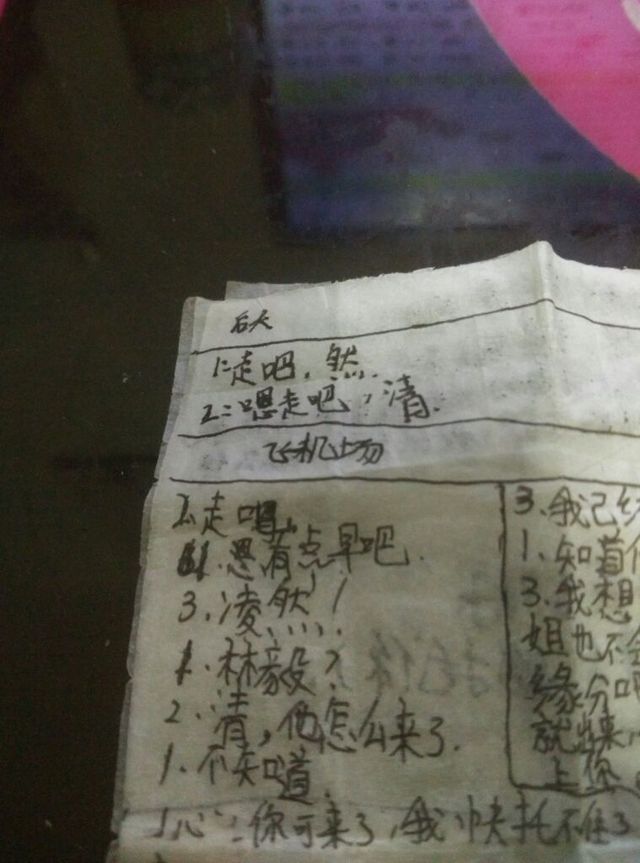 后天
1:走吧,然.
2:嗯走吧,清.
飞机上场
2.走吧
1.恩有点早吧.
3.凌然!
1.林毅?
2.清,他怎么来了.
1.不知道.
1心:你可来了,我快托不住了
3.我已
1.知道
3.我想
姐也不
缘分吧
就出来
上您